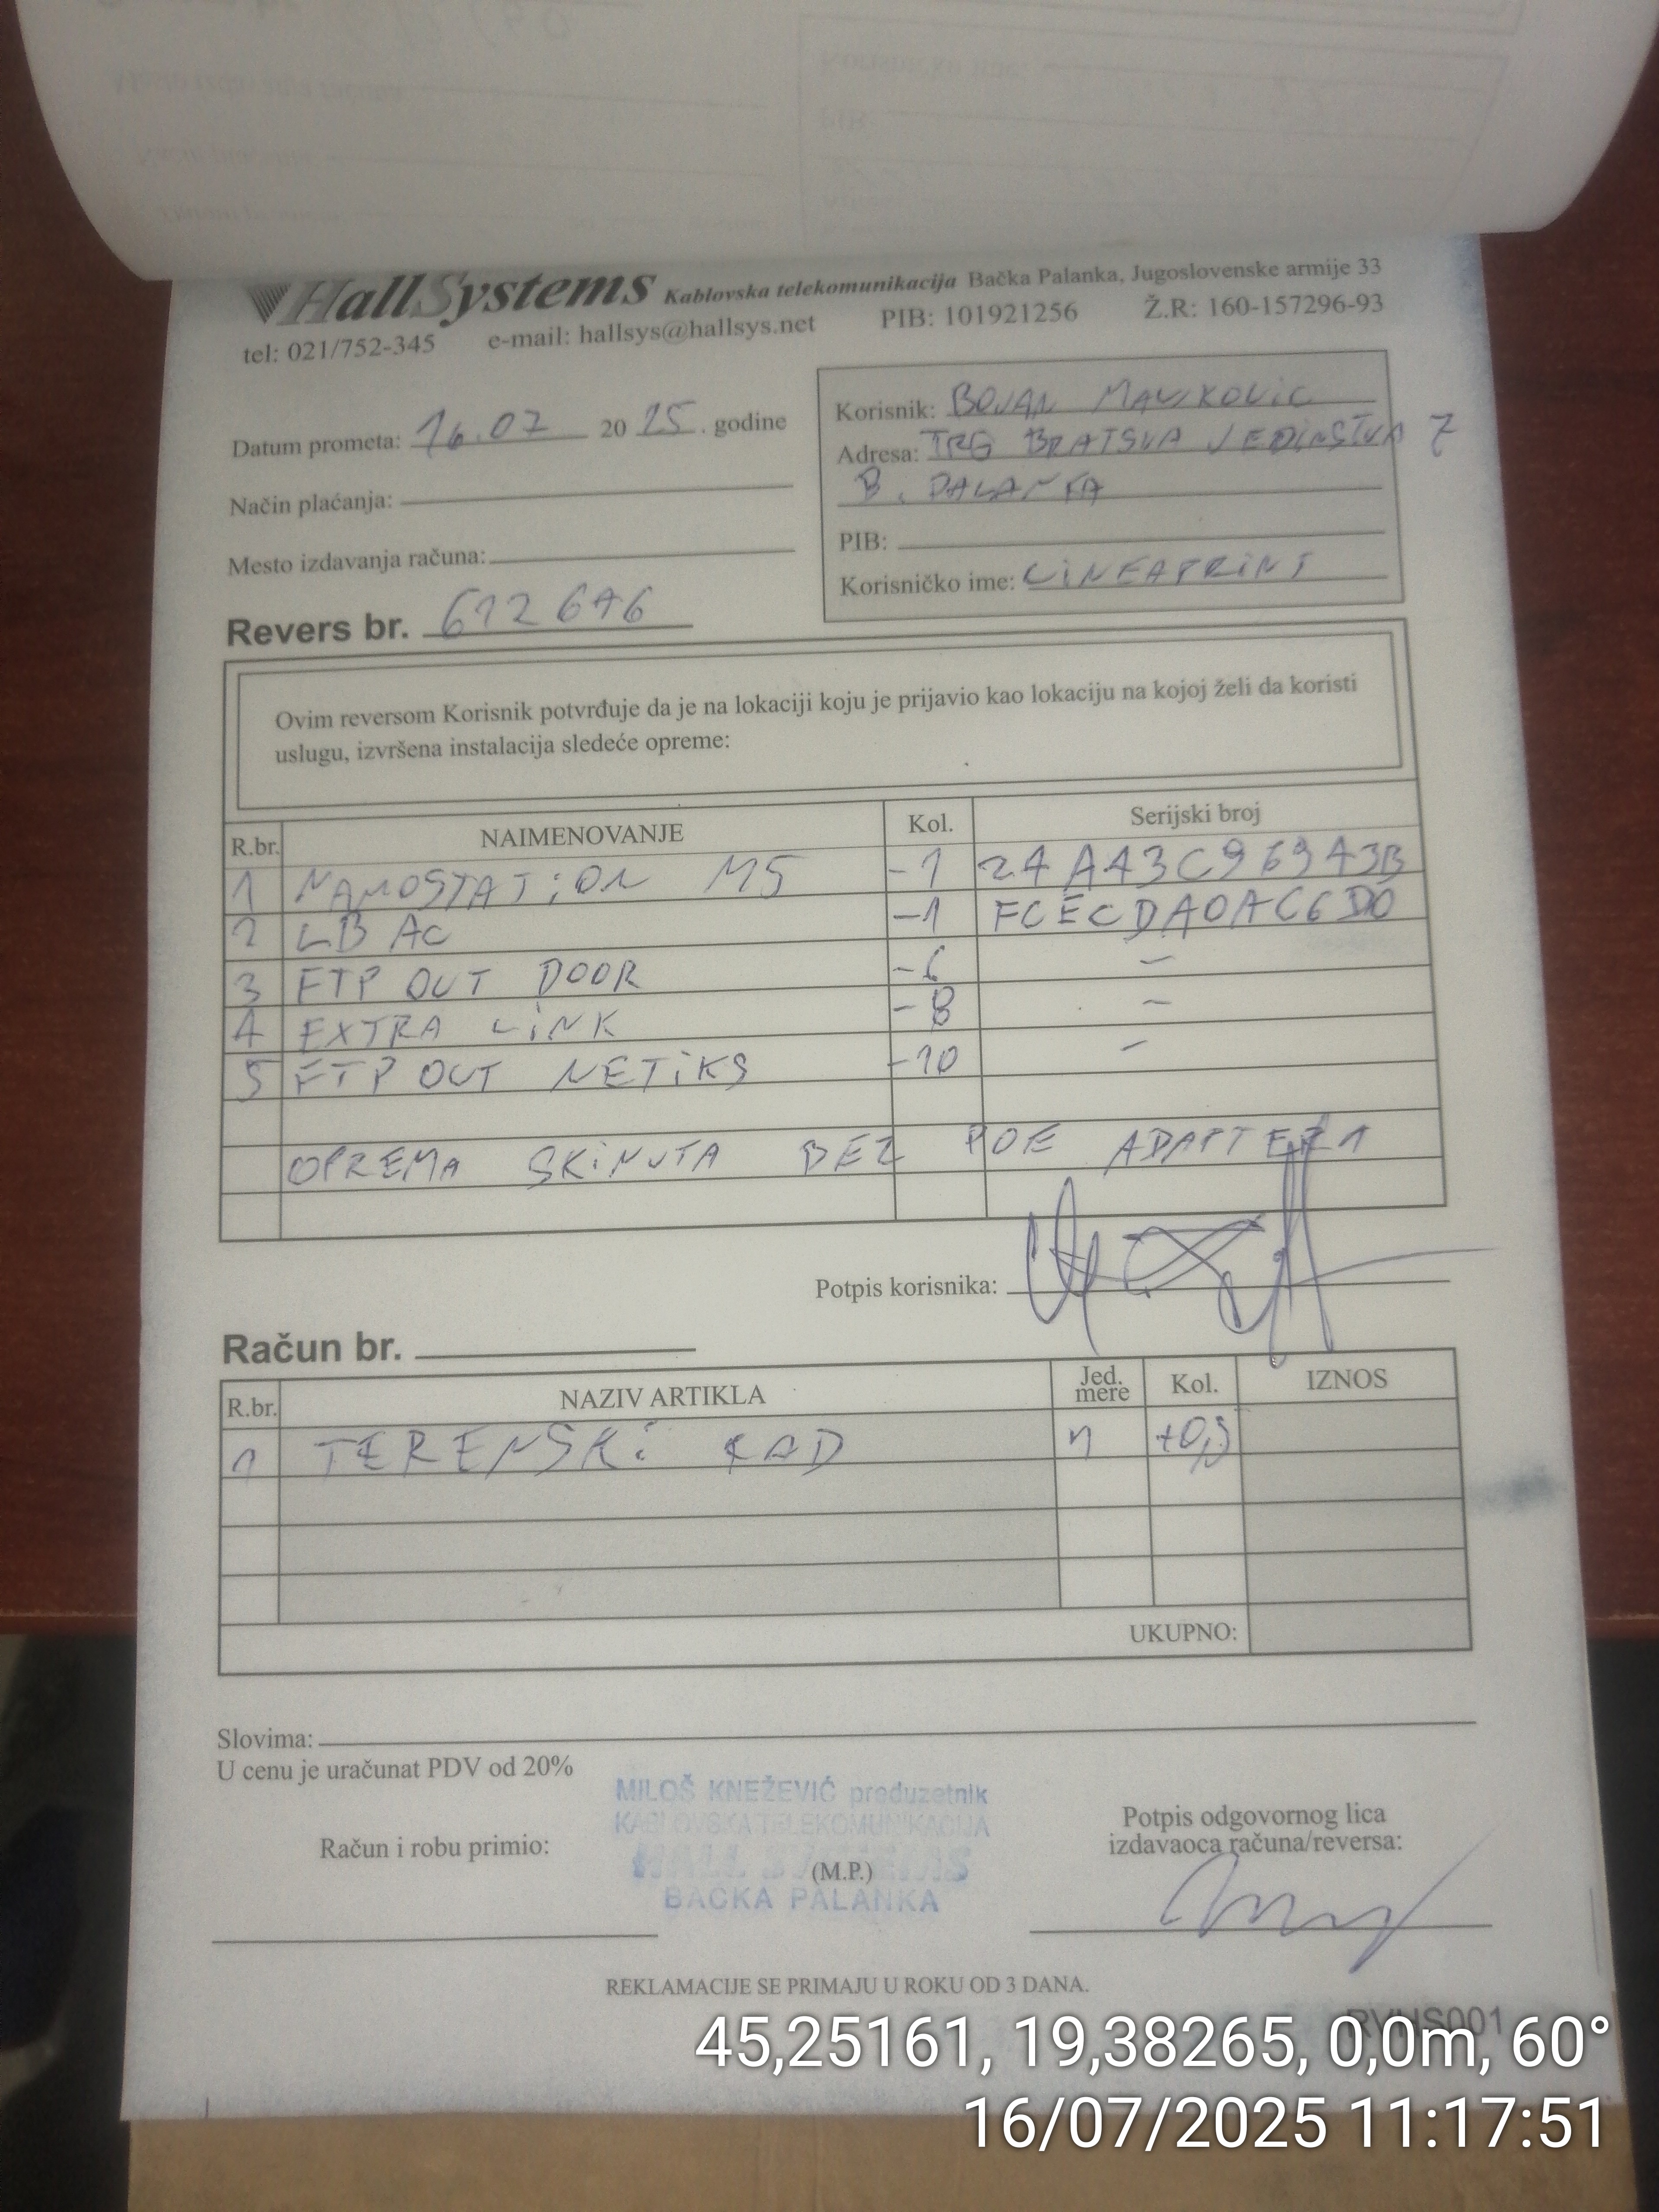 HallSystems Kablovska telekomunikacija Bačka Palanka, Jugoslovenske armije 33
tel: 021/752-345 e-mail: hallsys@hallsys.net PIB: 101921256 Ž.R: 160-157296-93
Datum prometa: 16.07 2025. godine
Način plaćanja:
Mesto izdavanja računa:
Korisnik: BOJAN
Adresa: TRG BRATSVA JEDINSTVA 7
B. PALANKA
PIB:
Korisničko ime: LINEAPRINT
Revers br. 612646
Ovim reversom Korisnik potvrđuje da je na lokaciji koju je prijavio kao lokaciju na kojoj želi da koristi
uslugu, izvršena instalacija sledeće opreme:
R.br. NAIMENOVANJE Kol. Serijski broj
1 NANOSTATION M5 -1 24A43C96943B
2 LB AC -1 FCECDA0AC6D0
3 FTP OUT DOOR -6 -
4 EXTRA LINK -8 -
5 FTP OUT NETIKS -10 -
OPREMA SKINUTA BEZ POE ADAPTERA
Potpis korisnika:
Račun br.
R.br. NAZIV ARTIKLA Jed. mere Kol. IZNOS
1 TERENSKI RAD +0,5
UKUPNO:
Slovima:
U cenu je uračunat PDV od 20%
MILOŠ KNEŽEVIĆ preduzetnik
KABLOVSKA TELEKOMUNIKACIJA
HALL SYSTEMS
BAČKA PALANKA
Račun i robu primio:
(M.P.)
Potpis odgovornog lica
izdavaoca računa/reversa:
REKLAMACIJE SE PRIMAJU U ROKU OD 3 DANA.
RVHS001
45,25161, 19,38265, 0,0m, 60°
16/07/2025 11:17:51